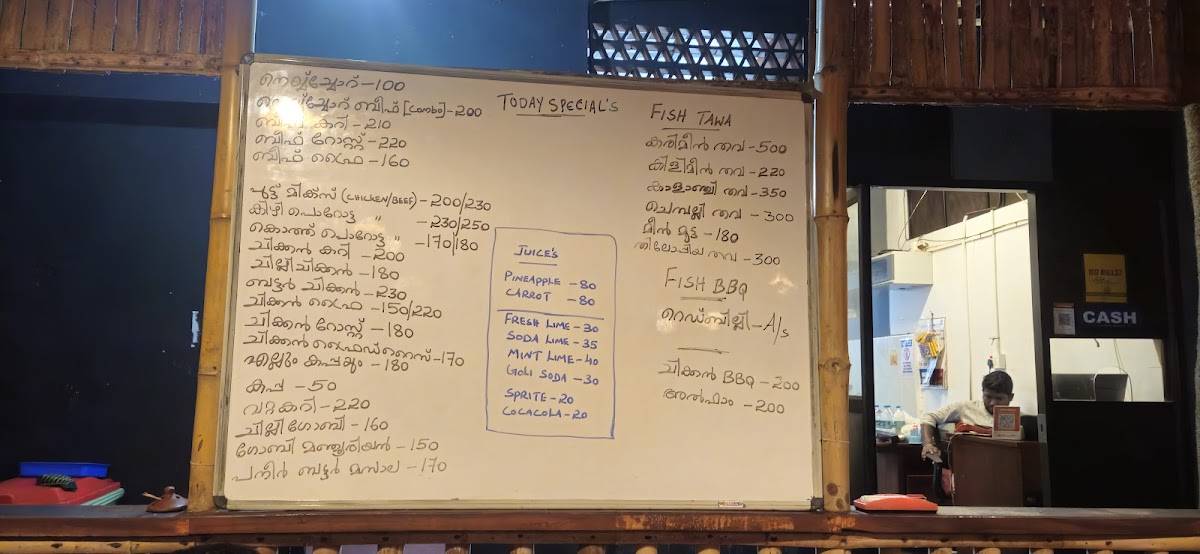 നെയ്ച്ചോറ് - 100
നെയ്ച്ചോറ് ബീഫ് [Combo] - 200
ബീഫ് കറി - 210
ബീഫ് റോസ്റ്റ് - 220
ബീഫ് ഫ്രൈ - 160
പുട്ട് മിക്സ് (CHICKEN/BEEF) - 200/230
കിഴി പൊറോട്ട " - 230/250
കൊത്ത് പൊറോട്ട " - 170/180
ചിക്കൻ കറി - 200
ചില്ലി ചിക്കൻ - 180
ബട്ടർ ചിക്കൻ - 230
ചിക്കൻ ഫ്രൈ - 150/220
ചിക്കൻ റോസ്റ്റ് - 180
ചിക്കൻ ഫ്രൈഡ്റൈസ് - 170
എല്ലും കപ്പയും - 180
കപ്പ - 50
വറ്റകറി - 220
ചില്ലി ഗോബി - 160
ഗോബി മഞ്ചൂരിയൻ - 150
പനീർ ബട്ടർ മസാല - 170
TODAY SPECIAL'S
JUICE'S
PINEAPPLE - 80
CARROT - 80
FRESH LIME - 30
SODA LIME - 35
MINT LIME - 40
GOLI SODA - 30
SPRITE - 20
COCACOLA - 20
FISH TAWA
കരിമീൻ തവ - 500
കിളിമീൻ തവ - 220
കാളാഞ്ചി തവ - 350
ചെമ്പല്ലി തവ - 300
മീൻ മുട്ട - 180
തിലോപ്പിയ തവ - 300
FISH BBQ
റെഡ്ബില്ലി - A/s
ചിക്കൻ BBQ - 200
അൽഫാം - 200
CASH